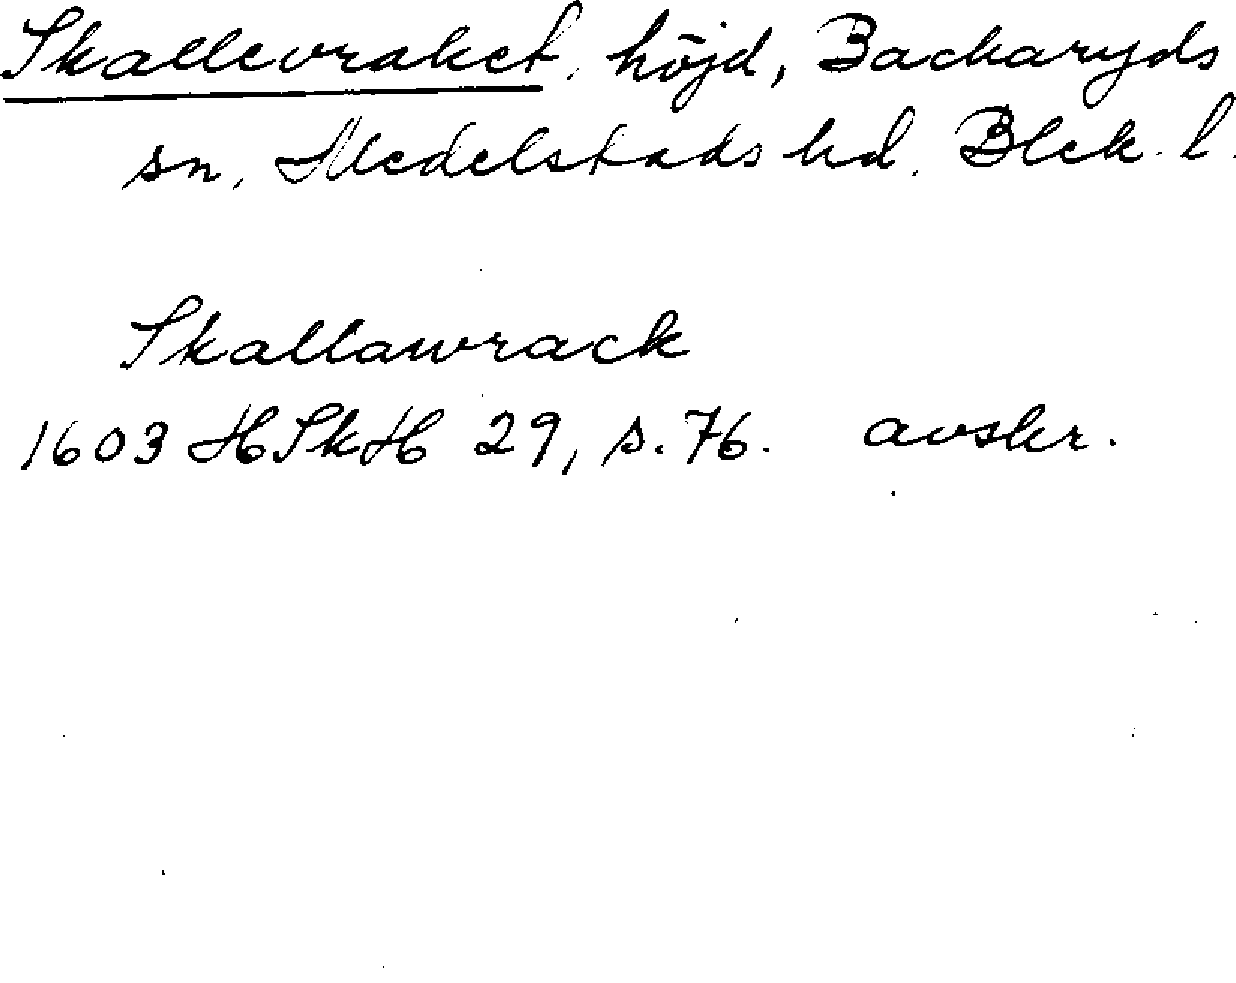 Skallevraket, höjd, Backaryds
sn, Medelstads hd. Blek. l.
Skallawrack
1603 HSkH 29, s. 76. avskr.